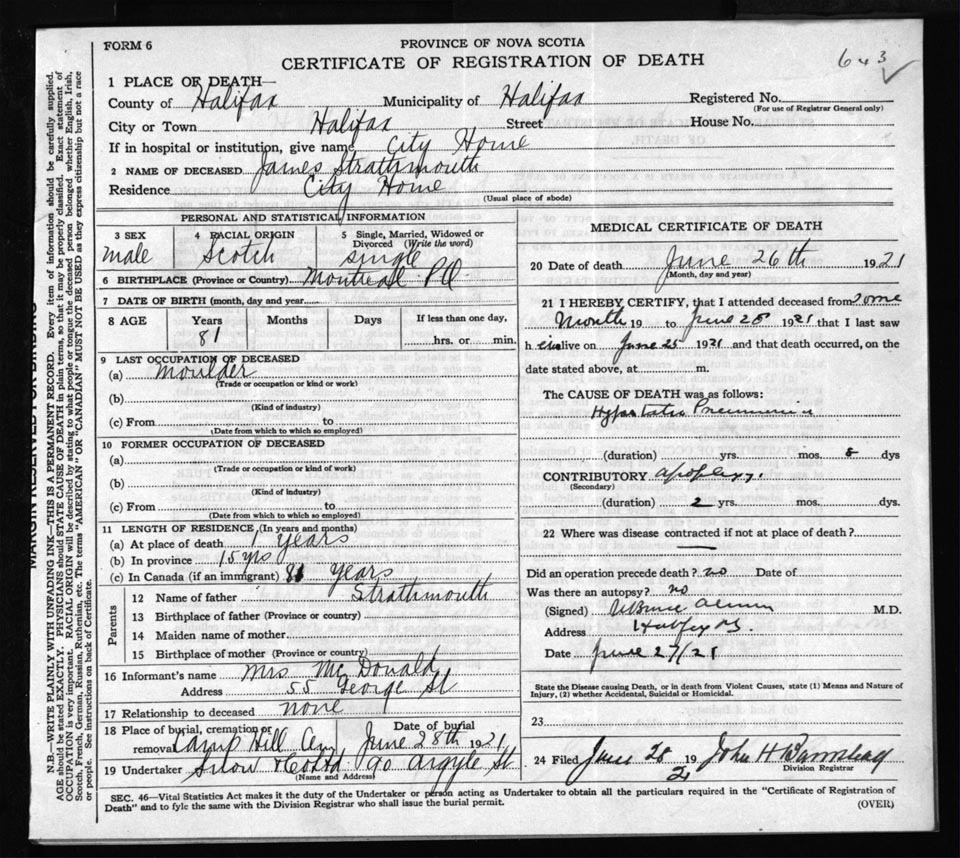 FORM 6
PROVINCE OF NOVA SCOTIA
CERTIFICATE OF REGISTRATION OF DEATH
643
1 PLACE OF DEATH—
County of Halifax Municipality of Halifax Registered No.
(For use of Registrar General only)
City or Town Halifax Street House No.
If in hospital or institution, give name City Home
2 NAME OF DECEASED James Strathmouth
Residence City Home
(Usual place of abode)
PERSONAL AND STATISTICAL INFORMATION
3 SEX 4 RACIAL ORIGIN 5 Single, Married, Widowed or Divorced (Write the word)
male Scotch single
6 BIRTHPLACE (Province or Country) Montreal P.Q.
7 DATE OF BIRTH (month, day and year)
8 AGE Years Months Days If less than one day,
81 hrs. or min.
9 LAST OCCUPATION OF DECEASED
(a) Moulder
(Trade or occupation or kind or work)
(b)
(Kind of industry)
(c) From to
(Date from which to which so employed)
10 FORMER OCCUPATION OF DECEASED
(a)
(Trade or occupation or kind of work)
(b)
(Kind of industry)
(c) From to
(Date from which to which so employed)
11 LENGTH OF RESIDENCE (In years and months)
(a) At place of death 1 years
(b) In province 15 yrs
(c) In Canada (if an immigrant) 81 years
Parents
12 Name of father Strathmouth
13 Birthplace of father (Province or country)
14 Maiden name of mother
15 Birthplace of mother (Province or country)
16 Informant's name Mrs McDonald
Address 55 George St
17 Relationship to deceased none
18 Place of burial, cremation or removal Camp Hill Cem Date of burial June 28th 1921
19 Undertaker Snow & Co Ltd 90 Argyle St.
(Name and Address)
MEDICAL CERTIFICATE OF DEATH
20 Date of death June 26th 1921
(Month, day and year)
21 I HEREBY CERTIFY, that I attended deceased from Some
Month 19 to June 25 1921 that I last saw
h im alive on June 25 1921 and that death occurred, on the
date stated above, at m.
The CAUSE OF DEATH was as follows:
Hypostatic Pneumonia
(duration) yrs. mos. 8 dys
CONTRIBUTORY Apoplexy.
(Secondary)
(duration) 2 yrs. mos. dys.
22 Where was disease contracted if not at place of death?
Did an operation precede death? no Date of
Was there an autopsy? no
(Signed) M.D.
Address Halifax NS.
Date June 27/21
State the Disease causing Death, or in death from Violent Causes, state (1) Means and Nature of Injury, (2) whether Accidental, Suicidal or Homicidal.
23
24 Filed June 28 1921 John H
Division Registrar
SEC. 46—Vital Statistics Act makes it the duty of the Undertaker or person acting as Undertaker to obtain all the particulars required in the "Certificate of Registration of
Death" and to fyle the same with the Division Registrar who shall issue the burial permit.
(OVER)
MARGIN RESERVED FOR BINDING
N.B.—WRITE PLAINLY WITH UNFADING INK—THIS IS A PERMANENT RECORD. Every item of information should be carefully supplied.
AGE should be stated EXACTLY. PHYSICIANS should STATE CAUSE OF DEATH in plain terms, so that it may be properly classified. Exact statement of
OCCUPATION is very important. RACIAL ORIGIN will be described by stating to what people or tongue the deceased person belonged whether English, Irish,
Scotch, French, German, Russian, Ruthenian, etc. The terms "AMERICAN" OR "CANADIAN" MUST NOT BE USED as they express citizenship but not a race
or people. See instructions on back of Certificate.